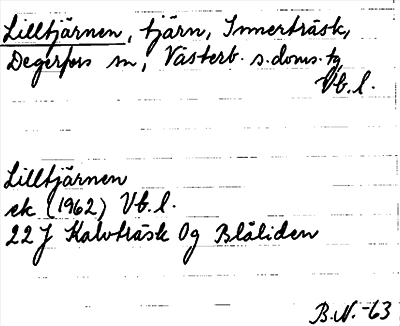 Lilltjärnen, tjärn, Innerträsk,
Degerfors sn, Västerb. s. doms. tg
Vb. l.
Lilltjärnen
ek (1962) Vb. l.
22 J Kalvträsk Og Blåliden
B.N. -63